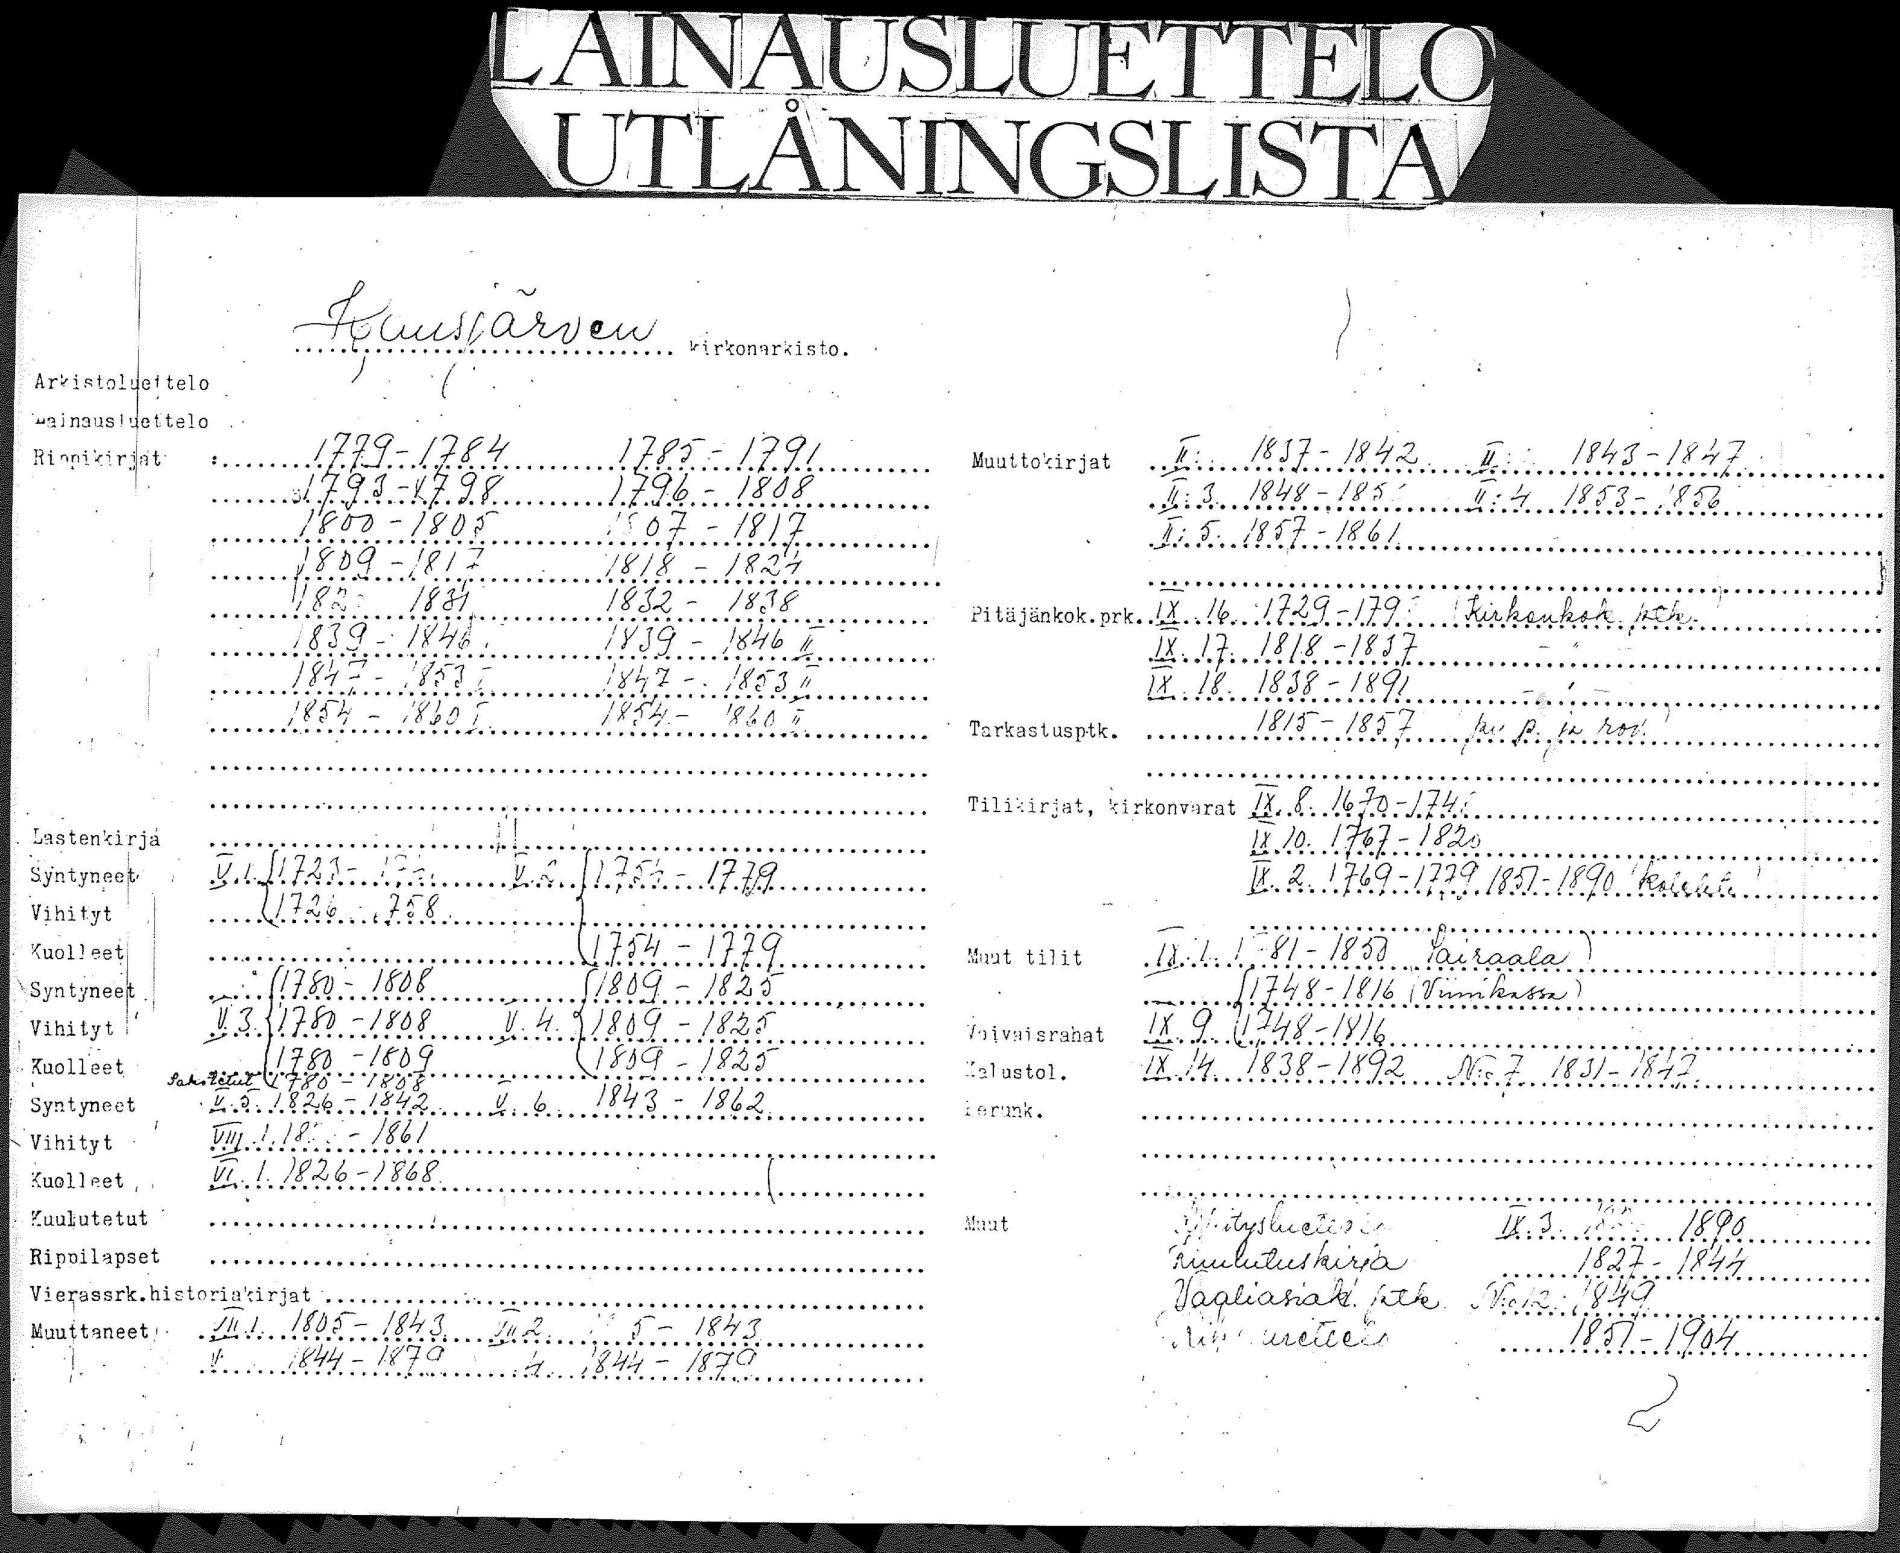 LAINAUSLUETTELO
UTLÅNINGSLISTA
kirkonarkisto.
Arkistoluettelo
Lainausluettelo
Rippikirjat : 1779-1784 1785-1791
1793-1798 1796-1808
1800-1805 1807-1817
1809-1817 1818-1824
1831 1832-1838
1839-1846 1839-1846 II
1847-1853 I 1847-1853 II
1854-1860 I 1854-1860 II
Lastenkirja
Syntyneet V.1. 1723- V.2 1754-1779
Vihityt 1726 1758
Kuolleet 1754-1779
Syntyneet 1780-1808 1809-1825
Vihityt V.3. 1780-1808 V.4. 1809-1825
Kuolleet 1780-1809 1809-1825
1780-1808
Syntyneet V.5. 1826-1842 V.6. 1843-1862
Vihityt VIII.1. -1861
Kuolleet VI.1. 1826-1868
Kuulutetut
Rippilapset
Vierassrk.historiakirjat
Muuttaneet VII.1. 1805-1843 VII.2. 5-1843
1844-1879 4. 1844-1879
Muuttokirjat II: 1837-1842 II: 1843-1847
II:3. 1848- II:4 1853-1856
II:5. 1857-1861
Pitäjänkok.prk. IX.16. 1729- (Kirkonkok. ptk.
IX.17. 1818-1837 - " -
IX.18. 1838-1891 - " -
Tarkastusptk. 1815-1857 p. ja rov.
Tilikirjat, kirkonvarat IX.8. 1670-
IX.10. 1767-1820
IX.2. 1769-1779 1851-1890
Muut tilit IX.1. 81-1850 (Sairaala)
1748-1816 (Viinikassa)
Vaivaisrahat IX.9. 1748-1816
Kalustol. IX.14. 1838-1892 No 7 1831-1847
Perunk.
Muut IX.3. 1890
Kuulutuskirja 1827-1844
ptk. No 12. 1849
1851-1904
2